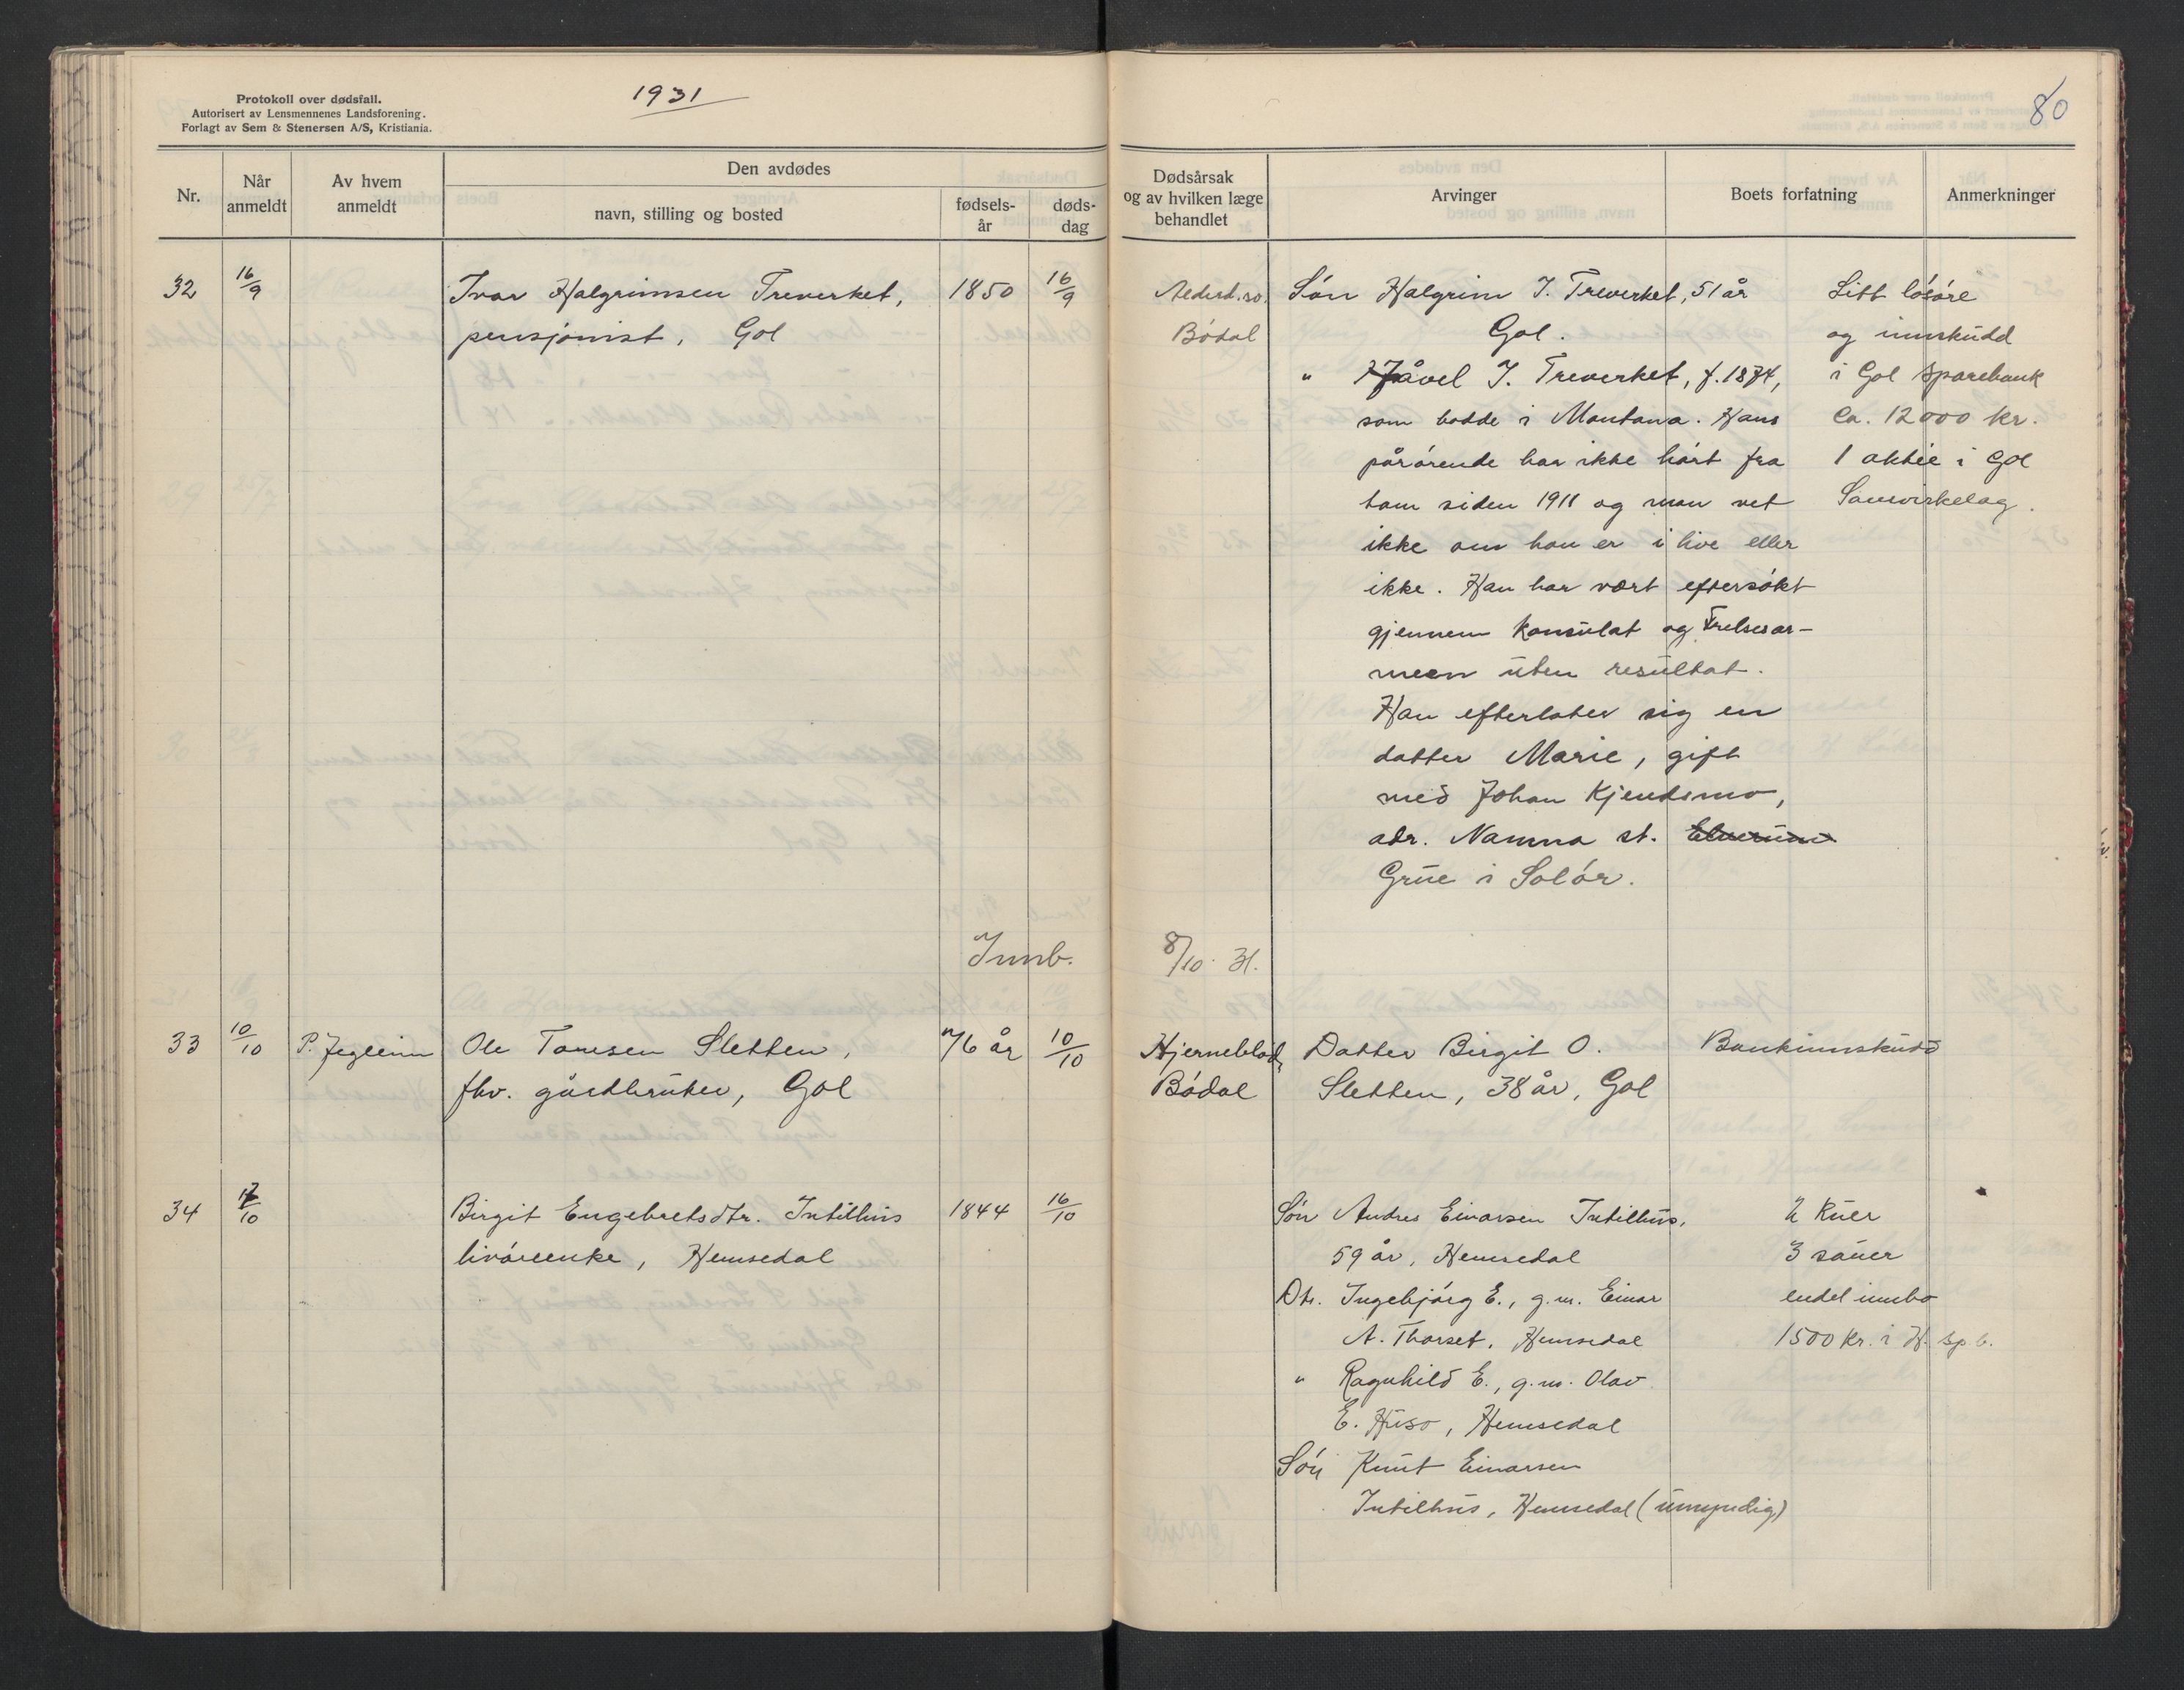 Protokoll over dødsfall.
Autorisert av Lensmennenes Landsforening.
Forlagt av Sem & Stenersen A/S, Kristiania.
1931
80
Nr.
Når anmeldt
Av hvem anmeldt
Den avdødes
navn, stilling og bosted
fødsels-år
døds-dag
Dødsårsak og av hvilken læge behandlet
Arvinger
Boets forfatning
Anmerkninger
32 16/9 Ivar Halgrimsen Treverket, 1850 16/9 Søn Halgrim I. Treverket, 51 år Litt løsøre
pensjonist, Gol Bødal Gol. og innskudd
" Håvel I. Treverket, f. 1874, i Gol Sparebank
som bodde i Montana. Hans ca. 12000 kr.
pårørende har ikke hørt fra 1 aktie i Gol
ham siden 1911 og man vet Samvirkelag.
ikke om han er i live eller
ikke. Han har vært eftersøkt
gjennem konsulat og Frelsesar-
meen uten resultat.
Han efterlater sig en
datter Marie, gift
med Johan Kjendsmo,
adr. Namna st. Elverum
Grue i Solør.
Innb. 8/10 31.
33 10/10 P. Jegleim Ole Tomesen Sletten, 76 år 10/10 Hjerneblodn Datter Birgit O. Bankinnskudd
fhv. gårdbruker, Gol Bødal Sletten, 38 år, Gol
34 17/10 Birgit Engebretsdtr. Intilhus 1844 16/10 Søn Andres Einarsen Intilhus, 2 kuer
livøreenke, Hemsedal 59 år, Hemsedal 3 sauer
Dtr. Ingebjørg E., g.m. Einar endel innbo
A. Thorset, Hemsedal 1500 kr. i H. sp.b.
" Ragnhild E., g.m. Olav
E. Huso, Hemsedal
Søn Knut Einarsen
Intilhus, Hemsedal (umyndig)